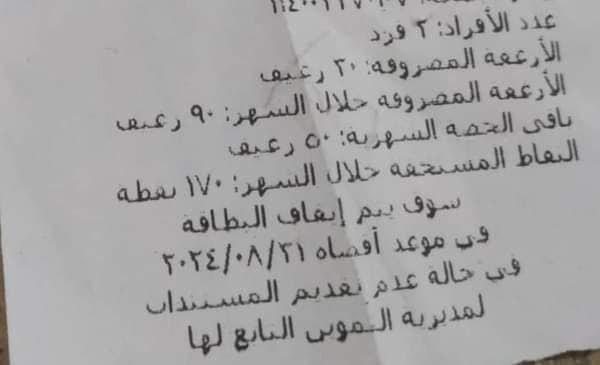 عدد الأفراد: ٢ فرد
الأرغفة المصروفة: ٢٠ رغيف
الأرغفة المصروفة خلال الشهر: ٩٠ رغيف
باقى الحصة الشهرية: ٥٠ رغيف
النقاط المستحقة خلال الشهر: ١٧٠ نقطة
سوف يتم إيقاف البطاقة
في موعد أقصاه ٢٠٢٤/٠٨/٣١
في حالة عدم تقديم المستندات
لمديرية التموين التابع لها